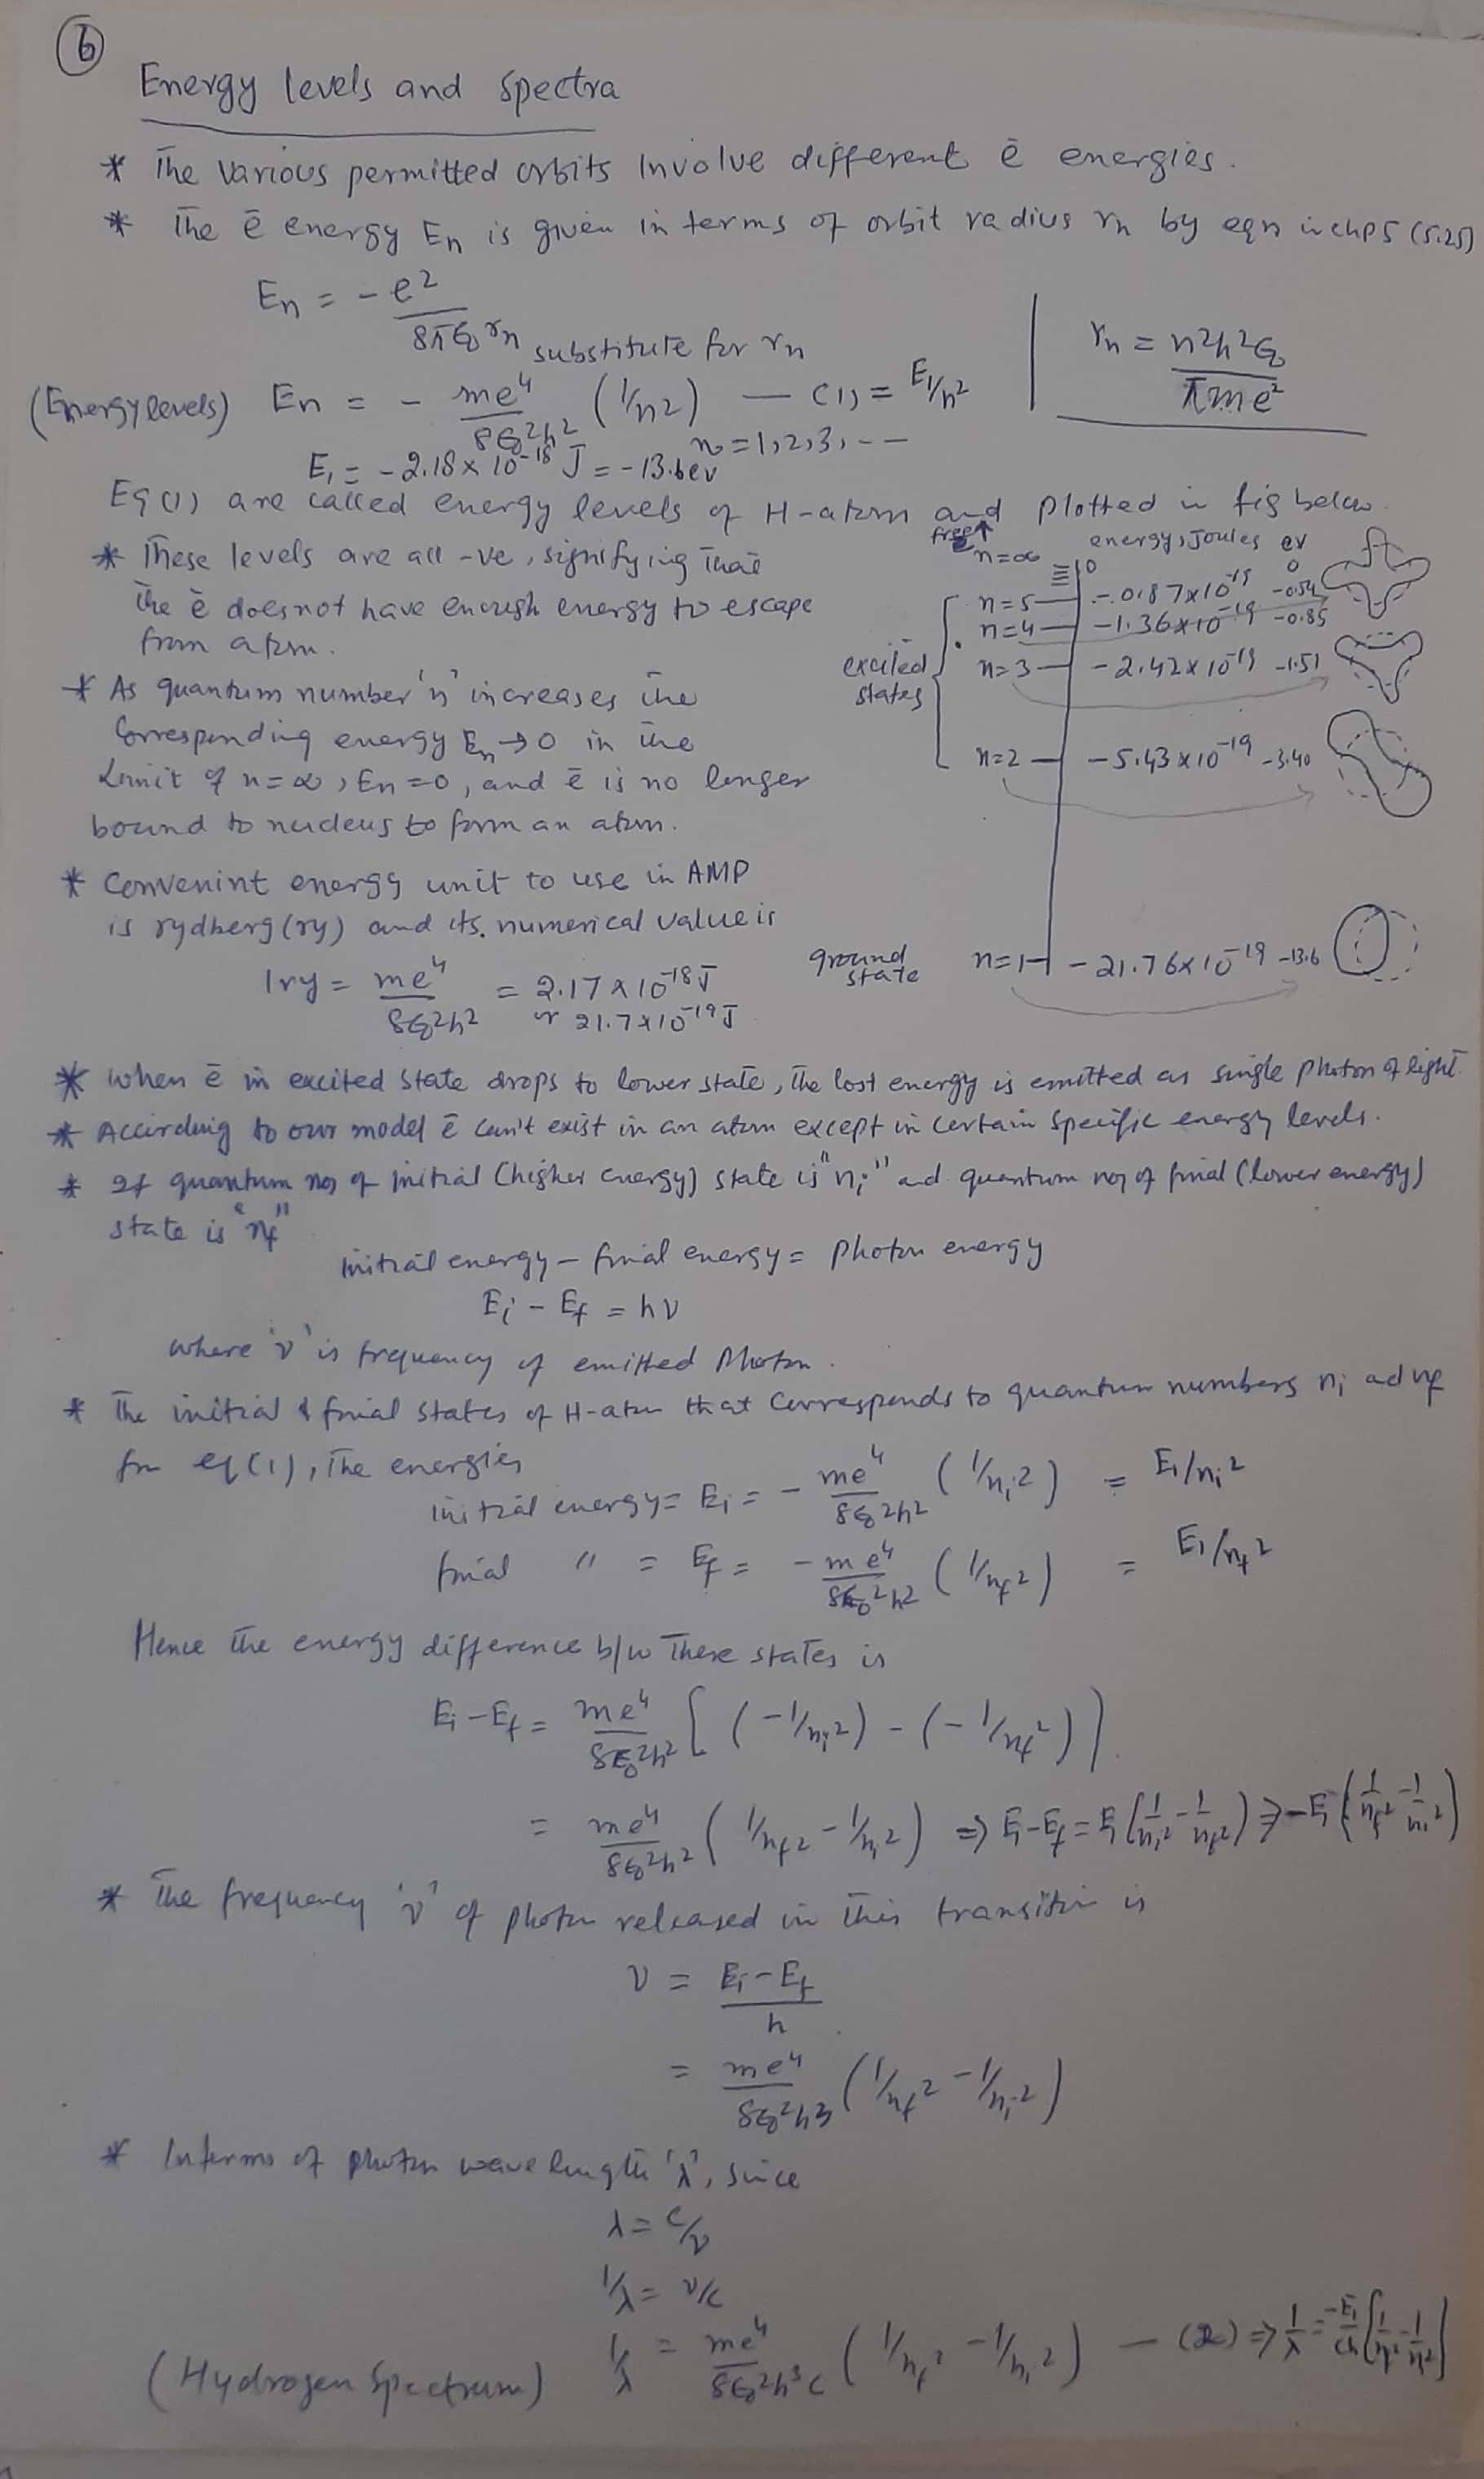 6
Energy levels and spectra
* The various permitted orbits Involve different ē energies.
* The ē energy En is given in terms of orbit radius rn by eqn in chp5 (5.25)
En = -e²/8πε₀rn
substitute for rn
rn = n²h²ε₀/πme²
(Energy levels) En = - me⁴/8ε₀²h² (1/n²) — (1) = E₁/n²
n = 1,2,3, --
E₁ = -2.18 x 10⁻¹⁸ J = -13.6ev
Eq (1) are called energy levels of H-atom and plotted in fig below.
* These levels are all -ve, signifying that
the ē does not have enough energy to escape
from atom.
* As quantum number 'n' increases the
Corresponding energy En → 0 in the
Limit of n=∞, En=0, and ē is no longer
bound to nucleus to form an atom.
free ē
n=∞
energy, Joules ev
0 0
n=5 -.0.87x10⁻¹⁹ -0.54
n=4 -1.36x10⁻¹⁹ -0.85
excited
states
n=3 - 2.42x10⁻¹⁹ -1.51
n=2 - 5.43x10⁻¹⁹ -3.40
ground
state
n=1 - 21.76x10⁻¹⁹ -13.6
* Convenint energy unit to use in AMP
is rydberg (ry) and its. numerical value is
1ry = me⁴/8ε₀²h² = 2.17 x 10⁻¹⁸J
or 21.7x10⁻¹⁹J
* When ē in excited state drops to lower state, the lost energy is emitted as single photon of light.
* According to our model ē can't exist in an atom except in certain specific energy levels.
* If quantum no, of initial (higher energy) state is "ni" and quantum no, of final (lower energy)
state is "nf"
initial energy - final energy = photon energy
Ei - Ef = hν
where 'ν' is frequency of emitted Photon.
* The initial & final states of H-atom that Corresponds to quantum numbers ni ad nf
fn eq (1), The energies
initial energy = Ei = - me⁴/8ε₀²h² (1/ni²) = E₁/ni²
final " = Ef = - me⁴/8ε₀²h² (1/nf²) = E₁/nf²
Hence the energy difference b/w These states is
Ei - Ef = me⁴/8ε₀²h² [(-1/ni²) - (-1/nf²)]
= me⁴/8ε₀²h² (1/nf² - 1/ni²) ⇒ Ei-Ef = E₁(1/ni² - 1/nf²) ⇒ -E₁(1/nf² - 1/ni²)
* The frequency 'ν' of photon released in this transition is
ν = Ei - Ef/h
= me⁴/8ε₀²h³ (1/nf² - 1/ni²)
* In terms of photon wave length 'λ', since
λ = c/ν
1/λ = ν/c
(Hydrogen Spectrum) 1/λ = me⁴/8ε₀²h³c (1/nf² - 1/ni²) — (2) ⇒ 1/λ = -E₁/ch [1/nf² - 1/ni²]